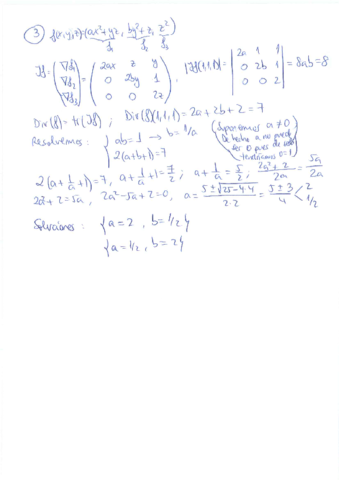 ③ f(x,y,z)=(ax²+yz, by²+z, z²)
f₁ f₂ f₃
Jf = (∇f₁ ∇f₂ ∇f₃) = (2ax z y; 0 2by 1; 0 0 2z), |Jf(1,1,1)| = |2a 1 1; 0 2b 1; 0 0 2| = 8ab = 8
Div(f) = tr(Jf) ; Div(f)(1,1,1) = 2a+2b+2 = 7
Resolvemos: { ab=1 → b=1/a
2(a+b+1)=7
(Suponemos a≠0
De hecho a no puede
ser 0 pues de
tendríamos 0=1)
2(a+1/a+1)=7, a+1/a+1=7/2 ; a+1/a=5/2, (2a²+2)/2a = 5a/2a
2a²+2=5a, 2a²-5a+2=0, a = (5±√25-4·4)/2·2 = (5±3)/4 < 2 1/2
Soluciones: {a=2, b=1/2}
{a=1/2, b=2}